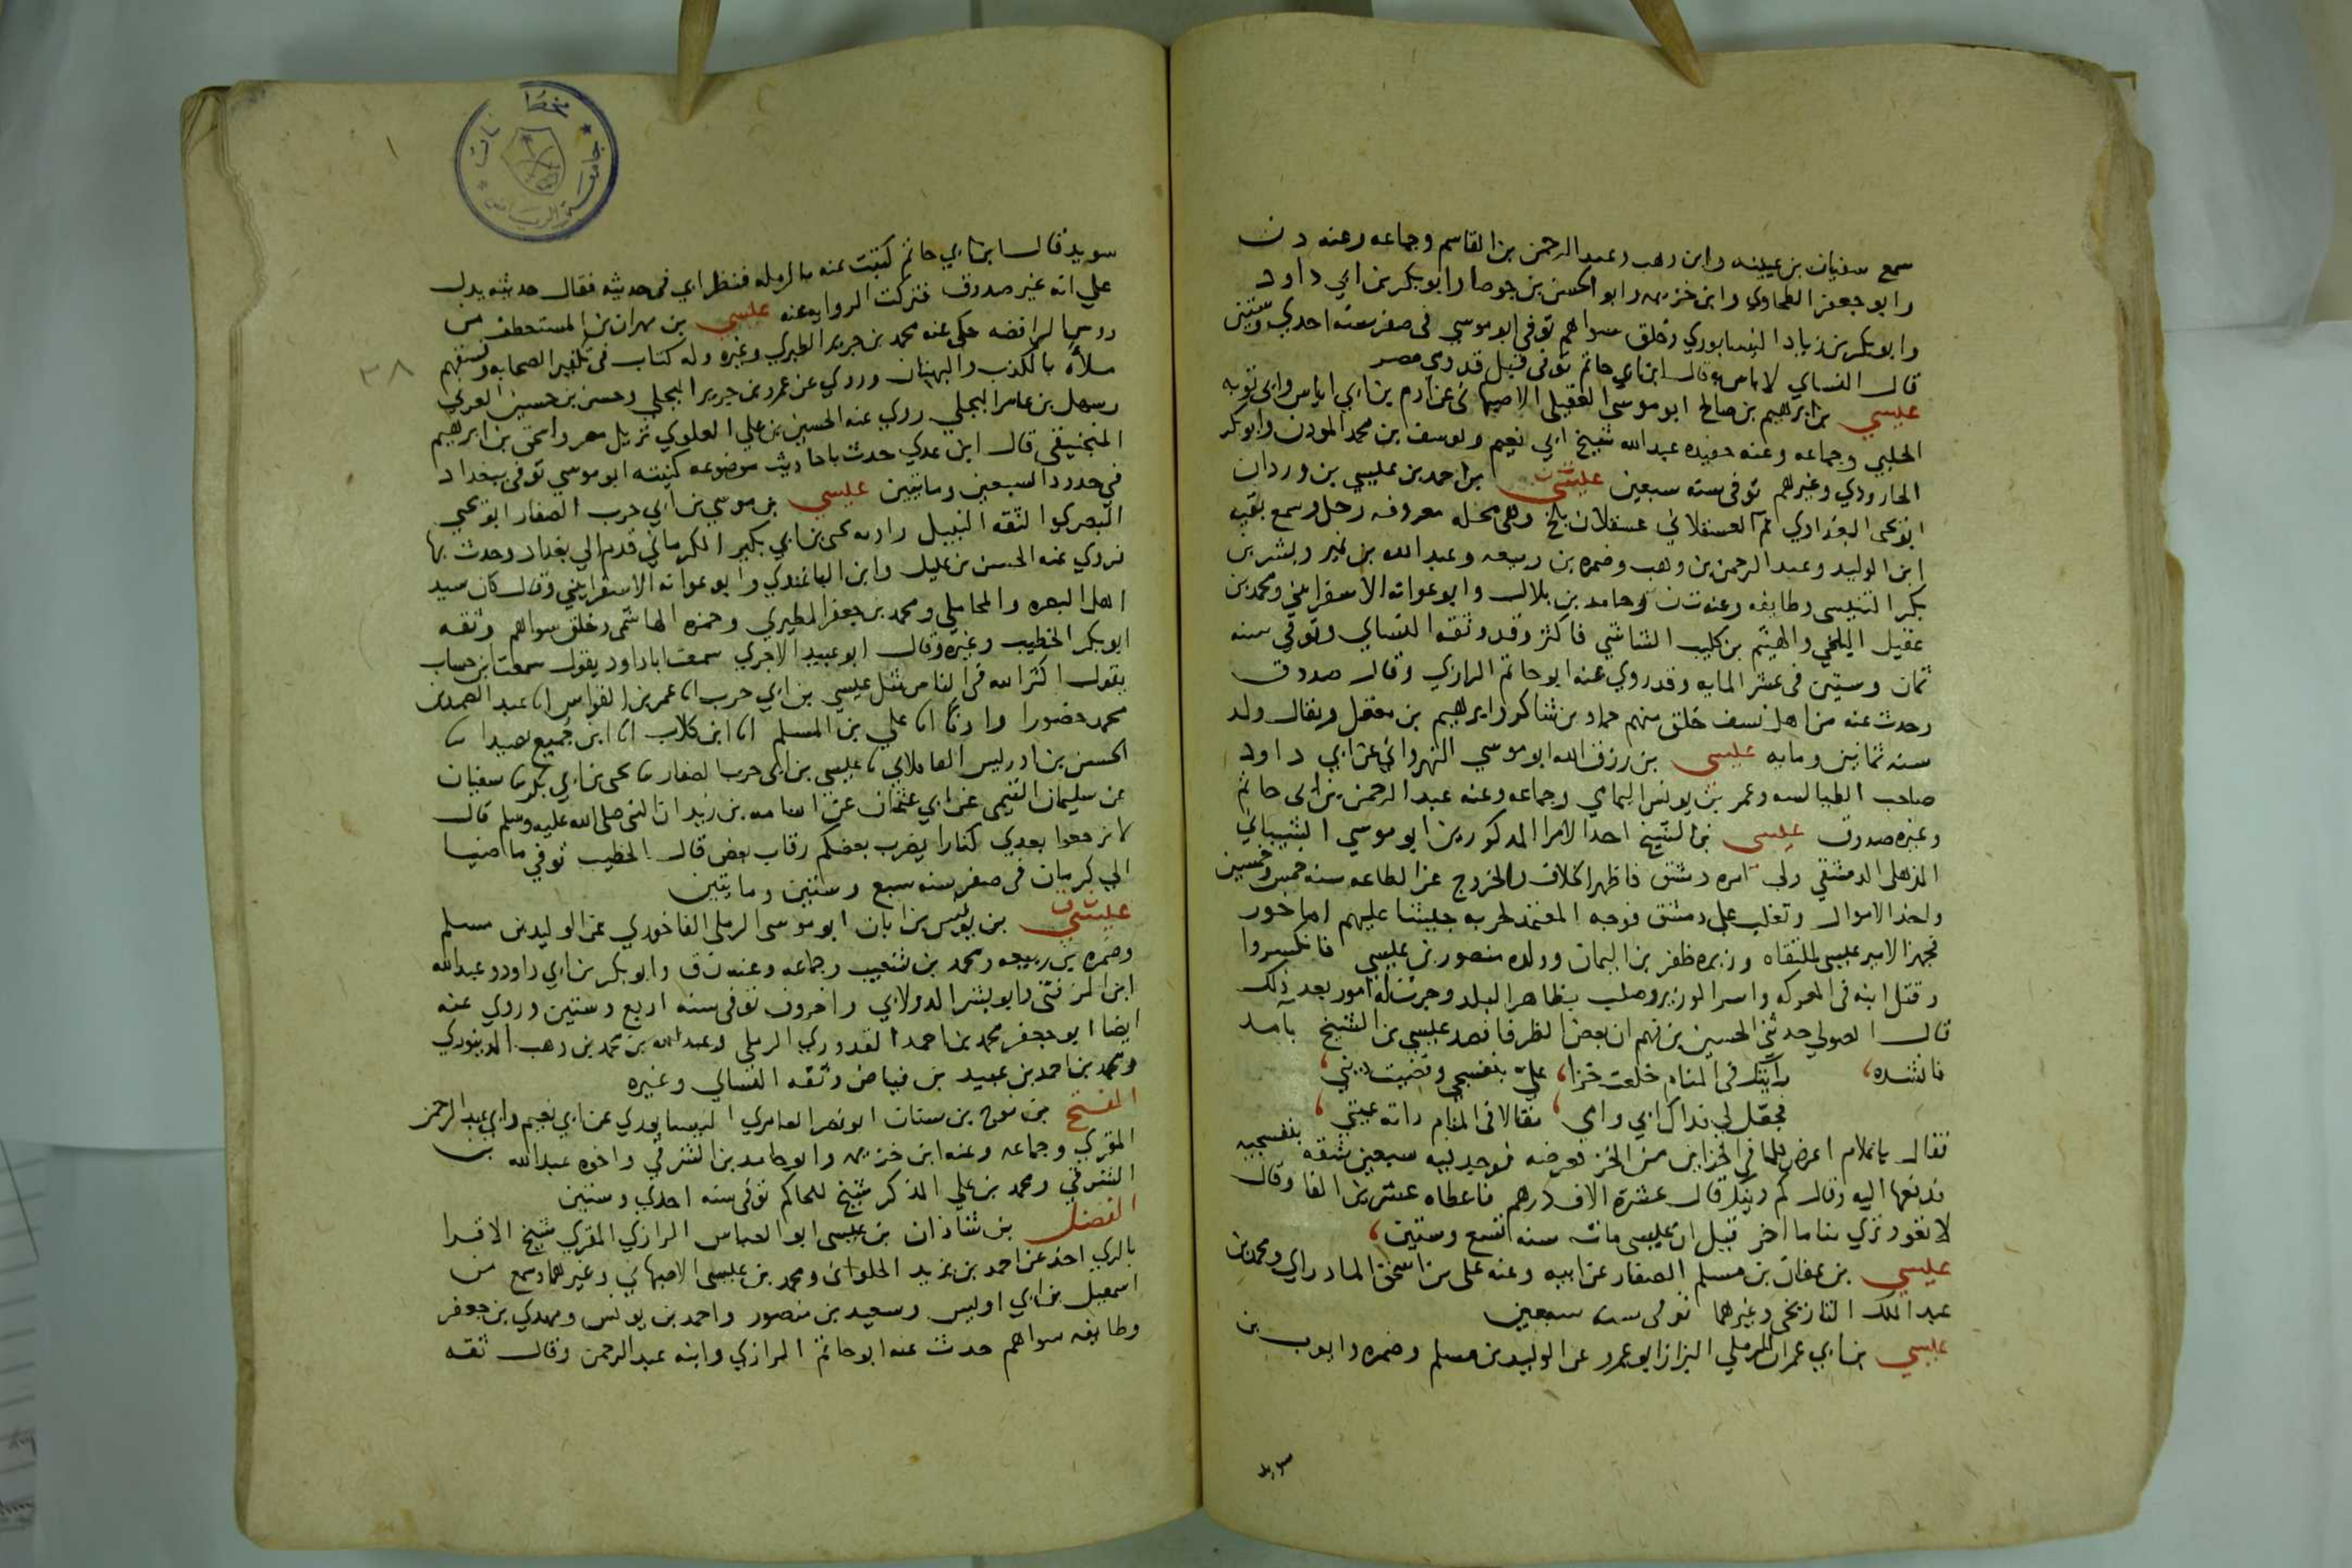 سمع سفيان بن عيينه وابن وهب وعبد الرحمن بن القاسم وجماعه وعنه د ن
وابو جعفر الطحاوي وابن خزيمه وابو الحسن بن جوصا وابو بكر بن ابي داود
وابو بكر بن زياد النيسابوري وخلق سواهم توفي ابو موسي في صفر سنه احدي وستين
قال النساي لا باس به وقال ابن ابي حاتم توفي قبل قدومي مصر
عيسي بن ابرهيم بن صالح ابو موسي العقيلي الاصبهاني عن ادم بن ابي اياس وابي توبه
الحلبي وجماعه وعنه حفيده عبد الله شيخ ابي نعيم ويوسف بن محمد الموذن وابو بكر
الجارودي وغيرهم توفي سنه سبعين عيسي بن احمد بن عيسي بن وردان
ابو يحيى البغدادي ثم العسقلاني عسقلان بلخ وهي محله معروفه رحل وسمع بقيه
ابن الوليد وعبد الرحمن بن وهب وضمره بن ربيعه وعبد الله بن نمير وبشر بن
بكر التنيسي وطايفه وعنه ت ن وحامد بن بلال وابو عوانه الاسفرايني ومحمد بن
عقيل البلخي والهيثم بن كليب الشاشي فاكثر وقد وثقه النساي وتوفي سنه
ثمان وستين في عشر المايه وقد روي عنه ابو حاتم الرازي وقال صدوق
وحدث عنه من اهل نسف خلق منهم حماد بن شاكر وابرهيم بن معقل ويقال ولد
سنه ثمانين ومايه عيسي بن رزق الله ابو موسي النهرواني عن ابي داود
صاحب الطيالسه وعمر بن يونس اليمامي وجماعه وعنه عبد الرحمن بن ابي حاتم
وغيره صدوق عيسي بن الشيخ احد الامرا المذكورين ابو موسي الشيباني
الذهلي الدمشقي ولي امره دمشق فاظهر الخلاف والخروج عن الطاعه سنه خمس وخمسين
واخذ الاموال وتغلب علي دمشق فوجه المعتمد لحربه جيشا عليهم اماجور
فجهز الامير عيسي لملتقاه وزيره ظفر بن اليمان وولده منصور بن عيسي فانكسروا
وقتل ابنه في المعركه واسر الوزير وصلب بظاهر البلد وجرت له امور بعد ذلك
قال الصولي حدثني الحسين بن فهم ان بعض الظرفا قصد عيسي بن الشيخ بآمد
فانشده، رايتك في المنام خلعت خزا، علي بنفسجي وقضيت ديني،
فعجل لي فداك ابي وامي، مقالا في المنام راته عيني،
فقال يا غلام اعرض كلما في الخزاين من الخز فعرضه فوجد فيه سبعين شقه بنفسجيه
فدفعها اليه وقال كم دينك قال عشره الاف درهم فاعطاه عشرين الفا وقال
لا تعود تري مناما اخر قيل ان عيسي مات سنه تسع وستين،
عيسي بن عفان بن مسلم الصفار عن ابيه وعنه علي بن اسحق المادراي ومحمد بن
عبد الملك التاريخي وغيرهما توفي سنه سبعين
عيسي بن ابي عمران الرملي البزاز ابو عمرو عن الوليد بن مسلم وضمره وايوب بن
سويد
سويد قال ابن ابي حاتم كتبت عنه بالرمله فنظر ابي في حديثه فقال حديثه يدل
علي انه غير صدوق فتركت الروايه عنه عيسي بن مهران بن المستعطف من
روس الرافضه حكي عنه محمد بن جرير الطبري وغيره وله كتاب في تكفير الصحابه وفسقهم
ملأه بالكذب والبهتان وروي عن عمرو بن جرير البجلي وحسن بن حسين العرني
وسهل بن عامر البجلي روي عنه الحسين بن علي العلوي نزيل مصر واسحق بن ابرهيم
المنجنيقي قال ابن عدي حدث باحاديث موضوعه كنيته ابو موسي توفي ببغداد
في حدود السبعين ومايتين عيسي بن موسي بن ابي حرب الصفار ابو يحيي
البصري الثقه النبيل راويه يحيى بن ابي بكير الكرماني قدم الي بغداد وحدث بها
فروي عنه الحسن بن عليل وابن الباغندي وابو عوانه الاسفرايني وقال كان سيد
اهل البصره والمحاملي ومحمد بن جعفر المطيري وحمزه الهاشمي وخلق سواهم وثقه
ابو بكر الخطيب وغيره وقال ابو عبيد الاجري سمعت ابا داود يقول سمعت ابن حساب
يقول اكثر الله في الناس مثل عيسي بن ابي حرب انا عمر بن القواس انا عبد الصمد بن
محمد حضورا وانا علي بن المسلم انا ابن طلاب انا ابن جميع بصيدا نا
الحسن بن ادريس نا عيسي بن ابي حرب الصفار نا يحيى بن ابي بكير نا سفيان
عن سليمان التيمي عن ابي عثمان عن اسامه بن زيد ان النبي صلى الله عليه وسلم قال
لا ترجعوا بعدي كفارا يضرب بعضكم رقاب بعض قال الخطيب توفي ماضيا
الي كرمان في صفر سنه سبع وستين ومايتين
عيسي بن يونس بن ابان ابو موسي الرملي الفاخوري عن الوليد بن مسلم
وضمره بن ربيعه ومحمد بن شعيب وجماعه وعنه ن ق وابو بكر بن ابي داود وعبد الله
ابن الزفتي وابو بشر الدولابي واخرون توفي سنه اربع وستين وروي عنه
ايضا ابو جعفر محمد بن احمد القدوري الرملي وعبد الله بن محمد بن وهب الدينوري
ومحمد بن احمد بن عبيد بن فياض وثقه النساي وغيره
الفتح بن نوح بن سنان ابو نصر العامري النيسابوري عن ابي نعيم وابي عبد الرحمن
المقري وجماعه وعنه ابن خزيمه وابو حامد بن الشرقي واخوه عبد الله بن
الشرقي ومحمد بن علي المذكر شيخ للحاكم توفي سنه احدي وستين
الفضل بن شاذان بن عيسي ابو العباس الرازي المقري شيخ الاقرا
بالري اخذ عن احمد بن يزيد الحلواني ومحمد بن عيسي الاصبهاني وغيرهما وسمع من
اسمعيل بن ابي اويس وسعيد بن منصور واحمد بن يونس ومهدي بن جعفر
وطايفه سواهم حدث عنه ابو حاتم الرازي وابنه عبد الرحمن وقال ثقه
٣٨